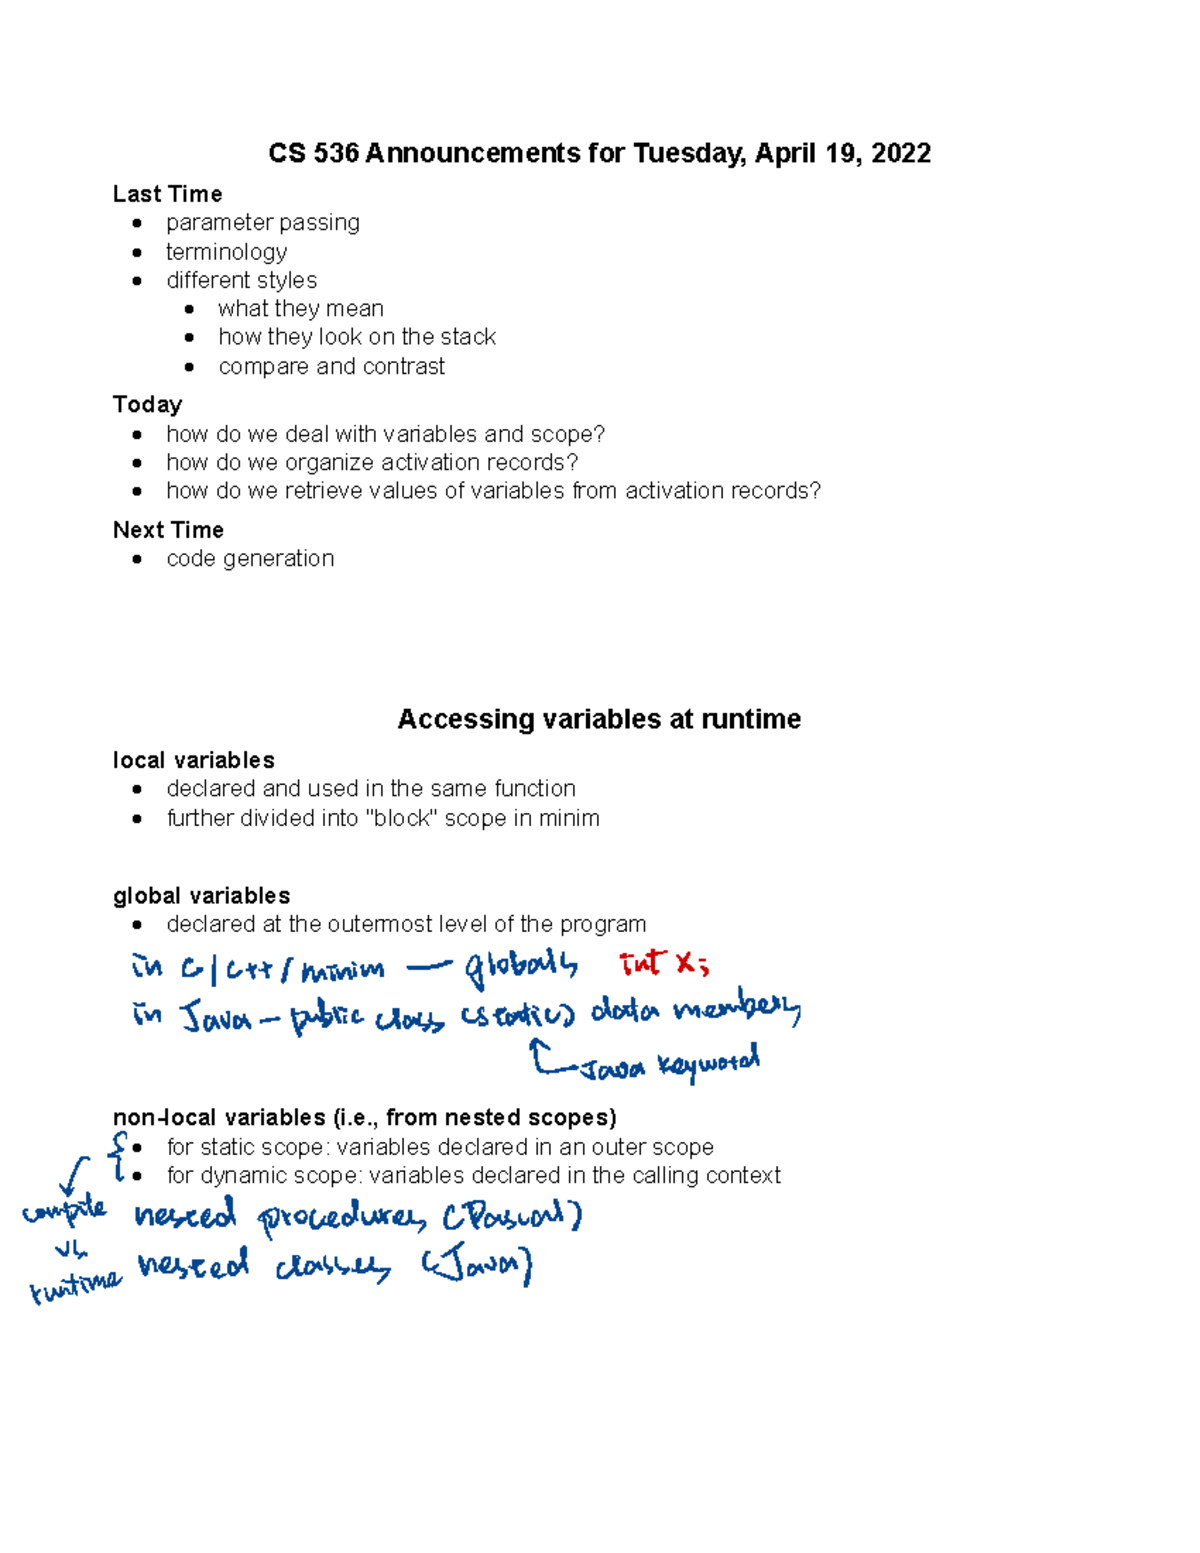 CS 536 Announcements for Tuesday, April 19, 2022
Last Time
• parameter passing
• terminology
• different styles
• what they mean
• how they look on the stack
• compare and contrast
Today
• how do we deal with variables and scope?
• how do we organize activation records?
• how do we retrieve values of variables from activation records?
Next Time
• code generation
Accessing variables at runtime
local variables
• declared and used in the same function
• further divided into "block" scope in minim
global variables
• declared at the outermost level of the program
in C/C++/minim — globals int x;
in Java - public class (static) data members
Java keyword
non-local variables (i.e., from nested scopes)
• for static scope: variables declared in an outer scope
• for dynamic scope: variables declared in the calling context
compile nested procedures (Pascal)
vs
runtime nested classes (Java)